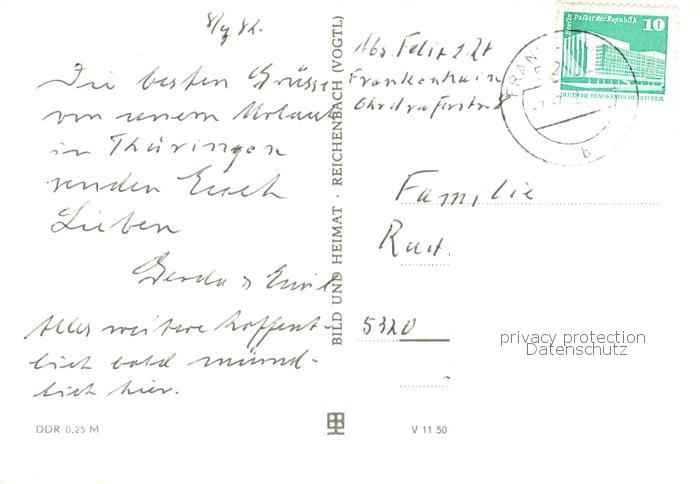 8/9 82.
Die besten Grüsse
von unserem Urlaub
in Thüringen
senden Euch
Lieben
Gerda & Emil
Alles weitere hoffent-
lich bald münd-
lich hier.
DDR 0,25 M
BILD UND HEIMAT · REICHENBACH (VOGTL)
Abs. Felix z. Zt
Frankenhain
Ohrdruferstr.
Berlin Palast der Republik 10
DEUTSCHE DEMOKRATISCHE REPUBLIK
FRAN
b
Familie
5320
privacy protection
Datenschutz
V 11 50